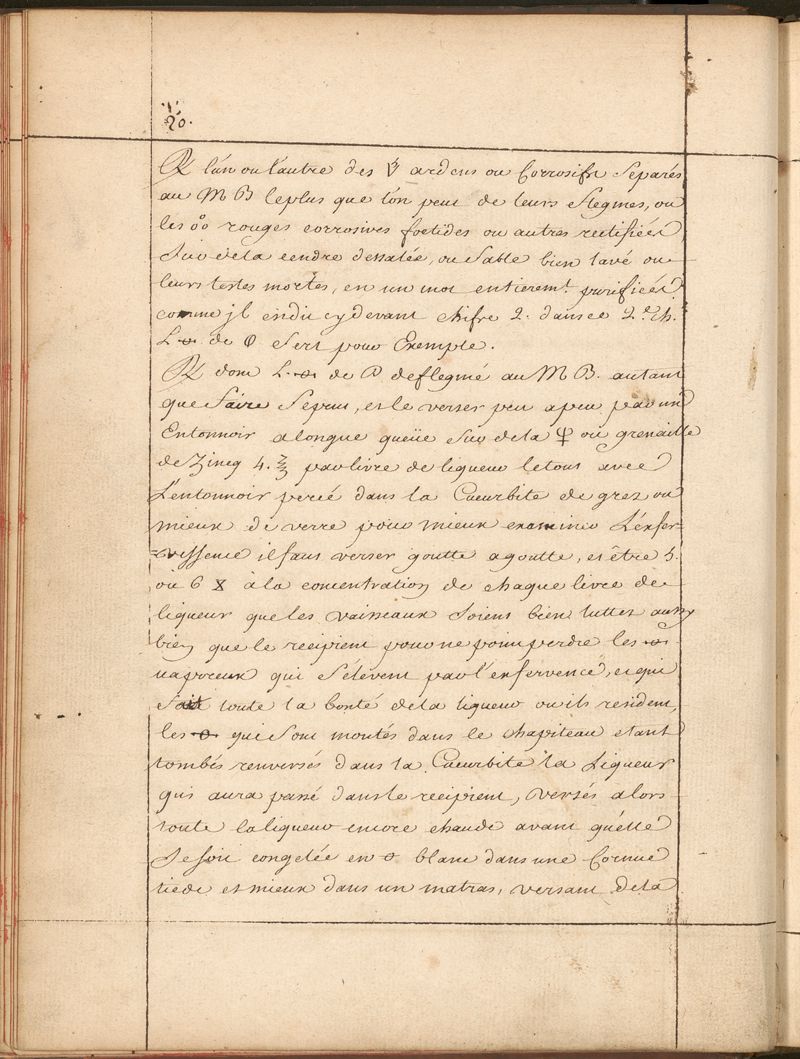 20.
℞ l'un ou l'autre des ardens ou Corrosifs Separés
au M B leplus que l'on peut de leurs flegmes, ou
les rouges corrosives foetides ou autres rectifiées
Sur dela cendre dessalée, ou Sable bien lavé ou
leurs testes mortes, en un mot entierem.t purifiées
comme jl endit cydevant chifre 2. dans ce 2.e ch.
L de Sert pour Exemple.
℞ donc L. de deflegmé au M B. autant
que faire Sepeut, et le verser peu apeu par un
Entonnoir alongue queüe Sur dela ou grenaille
de Zincq 4. ℥ par livre de liqueur letout avec
L'entonnoir percé dans la Cucurbite de grez ou
mieux de verre pour mieux examiner L'exfer-
vissence il faut verser goutte agoutte, et être 5.
ou 6 ala concentration de chaque livre de
liqueur que les vaisseaux Soient bien luttez aussy
bien que le recipient pour ne point perdre les
vaporeux qui S'élevent par l'enfervence, et qui
fait toute la bonté dela liqueur ou ils resident,
les qui Sont montés dans le chapiteau etant
tombés renversés dans la Cucurbite la Liqueur
qui aura passé dansle recipient, versés alors
toute laliqueur encore chaude avant qu'elle
Se Soit congelée en blanc dans une Cornue
tiede et mieux dans un matras, versant dela